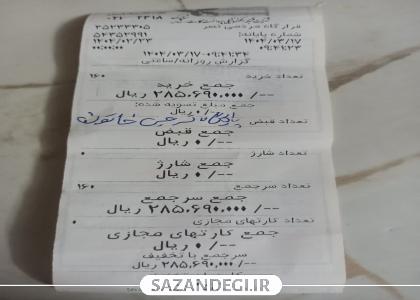 ۲۳۱۸
۳۵۲۳۳۳۰۵
شماره پایانه: ۵۴۳۵۲۹۹۱
۱۴۰۲/۰۲/۲۳ ۱۴۰۲/۰۳/۱۷
۰۰:۰۰:۰۰ ۰۹:۴۱:۲۳
۱۴۰۲/۰۳/۱۷-۰۹:۴۱:۲۴
گزارش روزانه/ساعتی
تعداد خرید ۱۶۰
جمع خرید
۲۸۵،۶۹۰،۰۰۰/-- ریال
جمع مبلغ تسویه شده:
۰/-- ریال
تعداد قبض
جمع قبض
۰/-- ریال
تعداد شارژ ۰
جمع شارژ
۰/-- ریال
تعداد سرجمع ۱۶۰
جمع سرجمع
۲۸۵،۶۹۰،۰۰۰/-- ریال
تعداد کارتهای مجازی ۰
جمع کارتهای مجازی
۰/-- ریال
سرجمع با تخفیف
۲۸۵،۶۹۰،۰۰۰/-- ریال
SAZANDEGI.IR